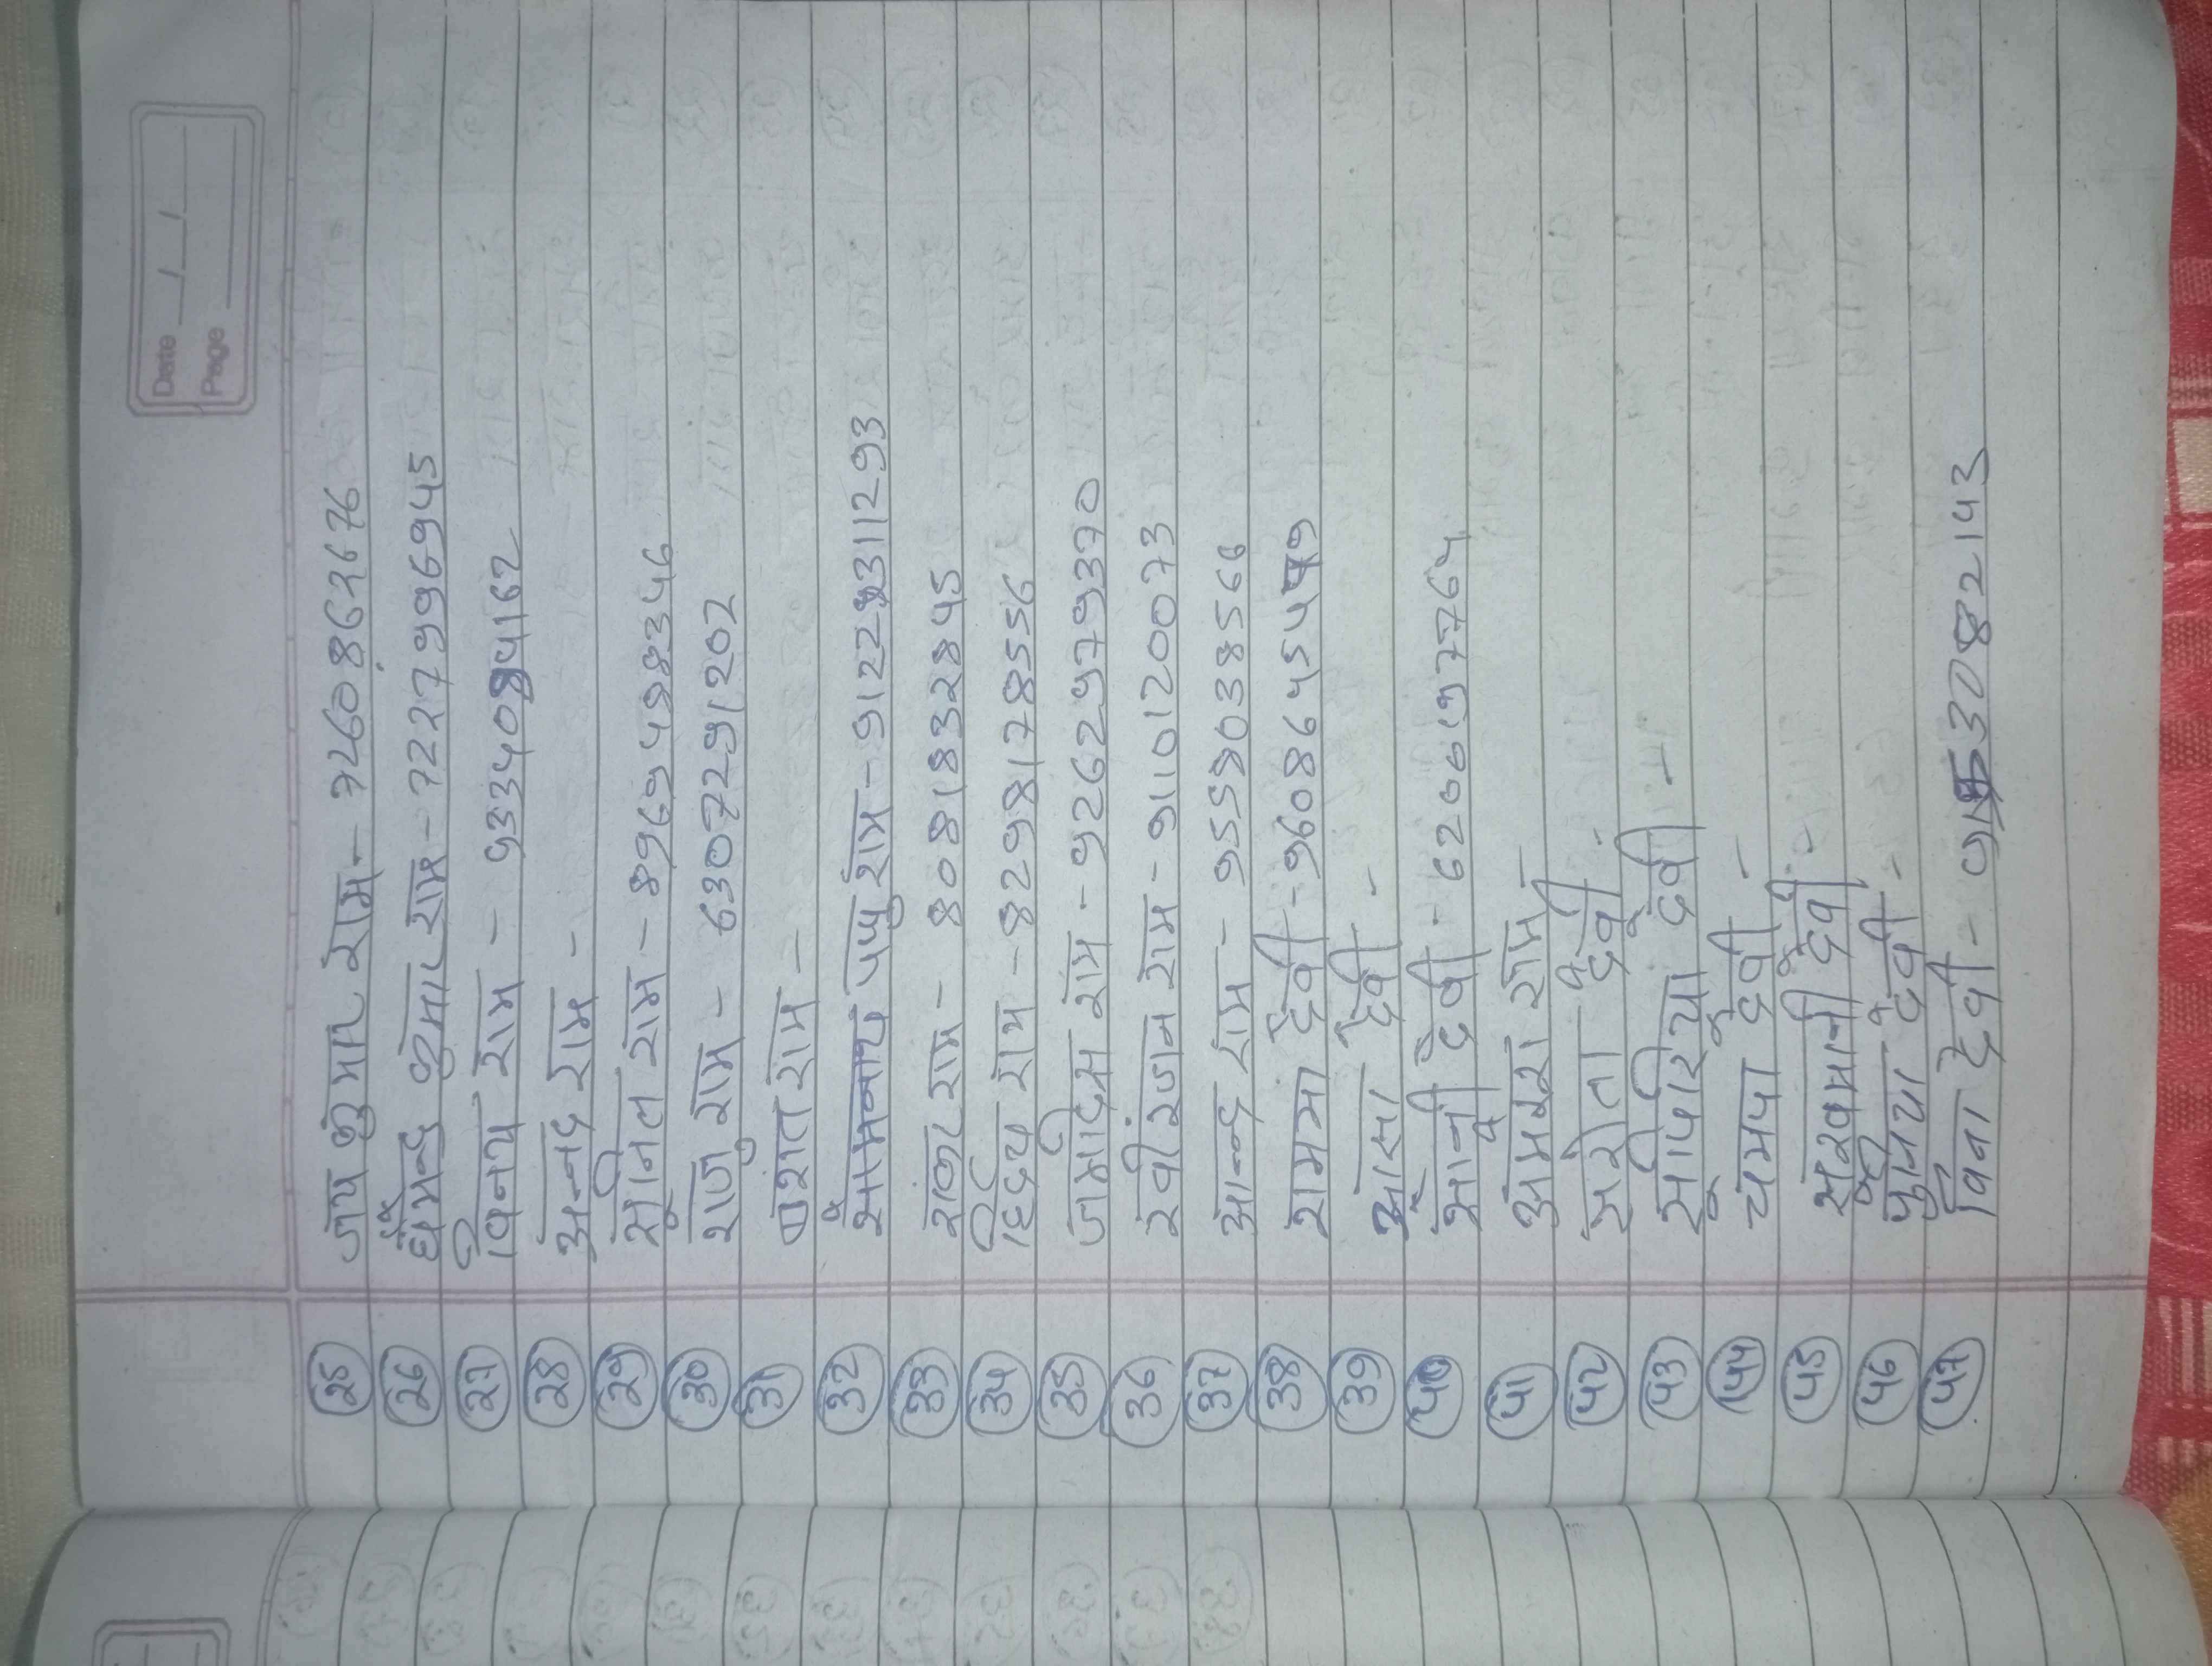 Date
Page
25 जय कुमार राम - 7260862676
26 धर्मेन्द्र कुमार राम - 7227996945
27 विनय राम - 9334084162
28 अनन्द राम -
29 सुनिल राम - 8969498346
30 राजु राम - 6307291202
31 राम -
32 सोमनाथ पपु राम - 91229311293
33 राम - 8081832845
34 हिर्दय राम - 8298178556
35 जगदिस राम - 9262979370
36 रवीरंजन राम - 9110120073
37 आनन्द राम - 9559038566
38 देवी - 9608645479
39 देवी -
40 देवी - 6206197764
41 अमरेश राम -
42 सरोता देवी -
43 देवी -
44 चम्पा देवी -
45 देवी -
46 देवी -
47 देवी -